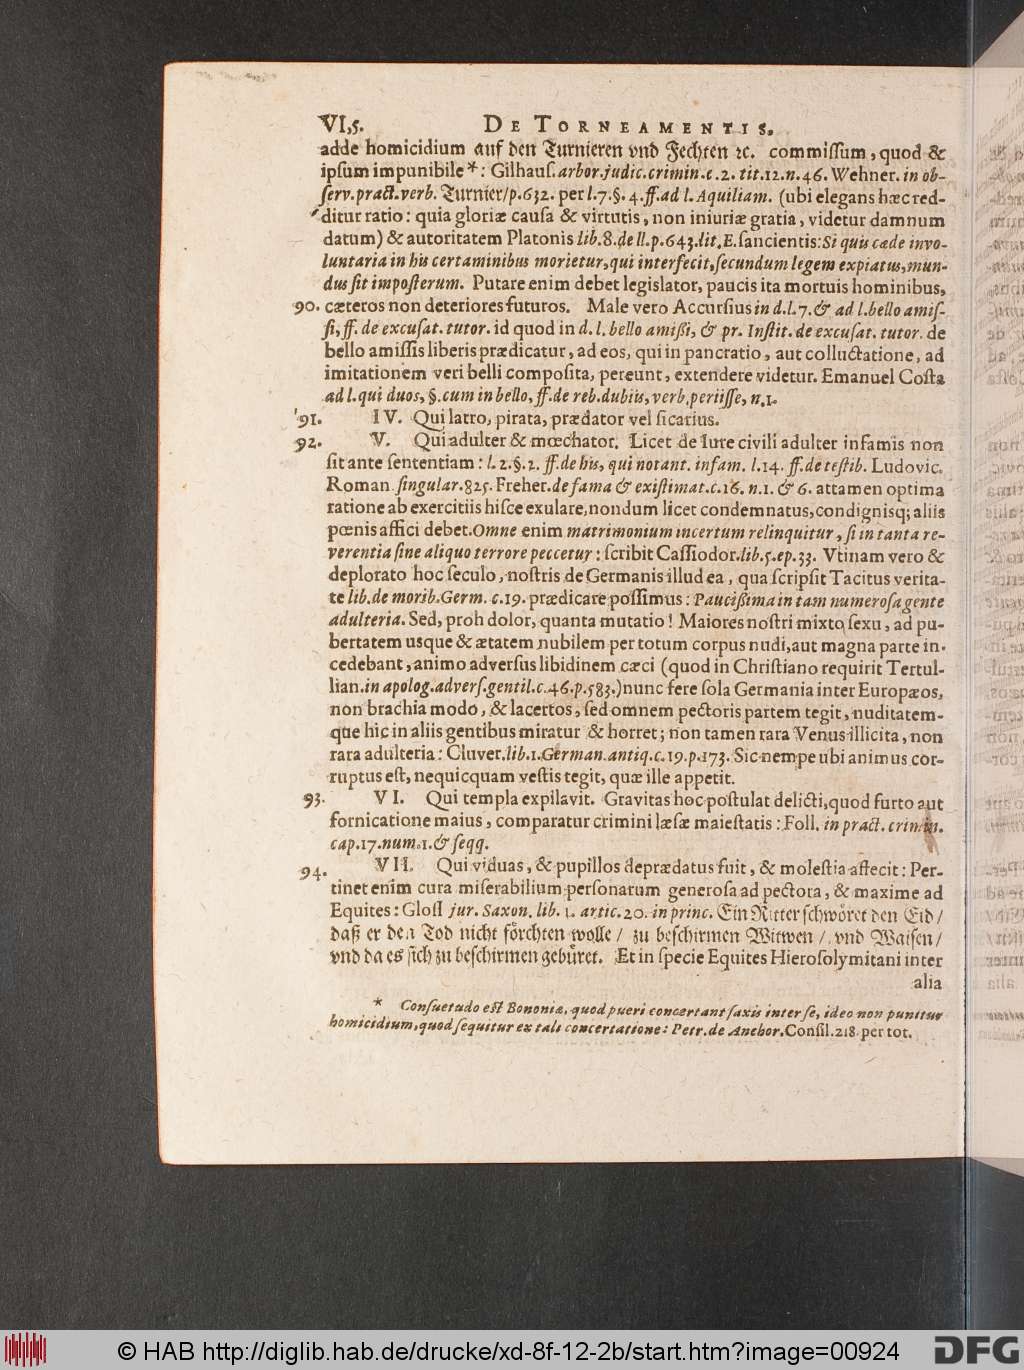 VI,5. DE TORNEAMENTIS.
adde homicidium auf den Turnieren vnd Fechten ꝛc. commiſſum, quod &
ipſum impunibile*: Gilhauſ. arbor. judic. crimin. c. 2. tit. 12. n. 46. Wehner. in ob-
ſerv. pract. verb. Turnier/ p. 632. per l. 7. §. 4. ff. ad l. Aquiliam. (ubi elegans hæc red-
ditur ratio: quia gloriæ cauſa & virtutis, non iniuriæ gratia, videtur damnum
datum) & autoritatem Platonis lib. 8. de ll. p. 643. lit. E. ſancientis: Si quis cæde invo-
luntaria in his certaminibus morietur, qui interfecit, ſecundum legem expiatus, mun-
dus ſit impoſterum. Putare enim debet legislator, paucis ita mortuis hominibus,
90. cæteros non deteriores futuros. Male vero Accurſius in d. l. 7. & ad l. bello amiſ-
ſi, ff. de excuſat. tutor. id quod in d. l. bello amißi, & pr. Inſtit. de excuſat. tutor. de
bello amiſſis liberis prædicatur, ad eos, qui in pancratio, aut colluctatione, ad
imitationem veri belli compoſita, pereunt, extendere videtur. Emanuel Coſta
ad l. qui duos, §. cum in bello, ff. de reb. dubiis, verb. periiſſe, n. 1.
91. IV. Qui latro, pirata, prædator vel ſicarius.
92. V. Qui adulter & mœchator. Licet de Iure civili adulter infamis non
ſit ante ſententiam: l. 2. §. 2. ff. de his, qui notant. infam. l. 14. ff. de teſtib. Ludovic.
Roman. ſingular. 825. Freher. de fama & exiſtimat. c. 16. n. 1. & 6. attamen optima
ratione ab exercitiis hiſce exulare, nondum licet condemnatus, condignisq; aliis
pœnis affici debet. Omne enim matrimonium incertum relinquitur, ſi in tanta re-
verentia ſine aliquo terrore peccetur: ſcribit Caſſiodor. lib. 5. ep. 33. Vtinam vero &
deplorato hoc ſeculo, noſtris de Germanis illud ea, qua ſcripſit Tacitus verita-
te lib. de morib. Germ. c. 19. prædicare poſſimus: Paucißima in tam numeroſa gente
adulteria. Sed, proh dolor, quanta mutatio! Maiores noſtri mixto ſexu, ad pu-
bertatem usque & ætatem nubilem per totum corpus nudi, aut magna parte in-
cedebant, animo adverſus libidinem cæci (quod in Chriſtiano requirit Tertul-
lian. in apolog. adverſ. gentil. c. 46. p. 583.) nunc fere ſola Germania inter Europæos,
non brachia modo, & lacertos, ſed omnem pectoris partem tegit, nuditatem-
que hic in aliis gentibus miratur & horret; non tamen rara Venus illicita, non
rara adulteria: Cluver. lib. 1. German. antiq. c. 19. p. 173. Sic nempe ubi animus cor-
ruptus eſt, nequicquam veſtis tegit, quæ ille appetit.
93. VI. Qui templa expilavit. Gravitas hoc poſtulat delicti, quod furto aut
fornicatione maius, comparatur crimini læſæ maieſtatis: Foll. in pract. crimin.
cap. 17. num. 1. & ſeqq.
94. VII. Qui viduas, & pupillos deprædatus fuit, & moleſtia affecit: Per-
tinet enim cura miſerabilium perſonarum generoſa ad pectora, & maxime ad
Equites: Gloſſ. jur. Saxon. lib. 1. artic. 20. in princ. Ein Ritter ſchwöret den Eid/
daß er den Tod nicht förchten wolle/ zu beſchirmen Witwen/ vnd Waiſen/
vnd da es ſich zu beſchirmen gebüret. Et in ſpecie Equites Hieroſolymitani inter
alia
* Conſuetudo eſt Bononiæ, quod pueri concertant ſaxis inter ſe, ideo non punitur
homicidium, quod ſequitur ex tali concertatione: Petr. de Anchor. Conſil. 218. per tot.
© HAB http://diglib.hab.de/drucke/xd-8f-12-2b/start.htm?image=00924
DFG